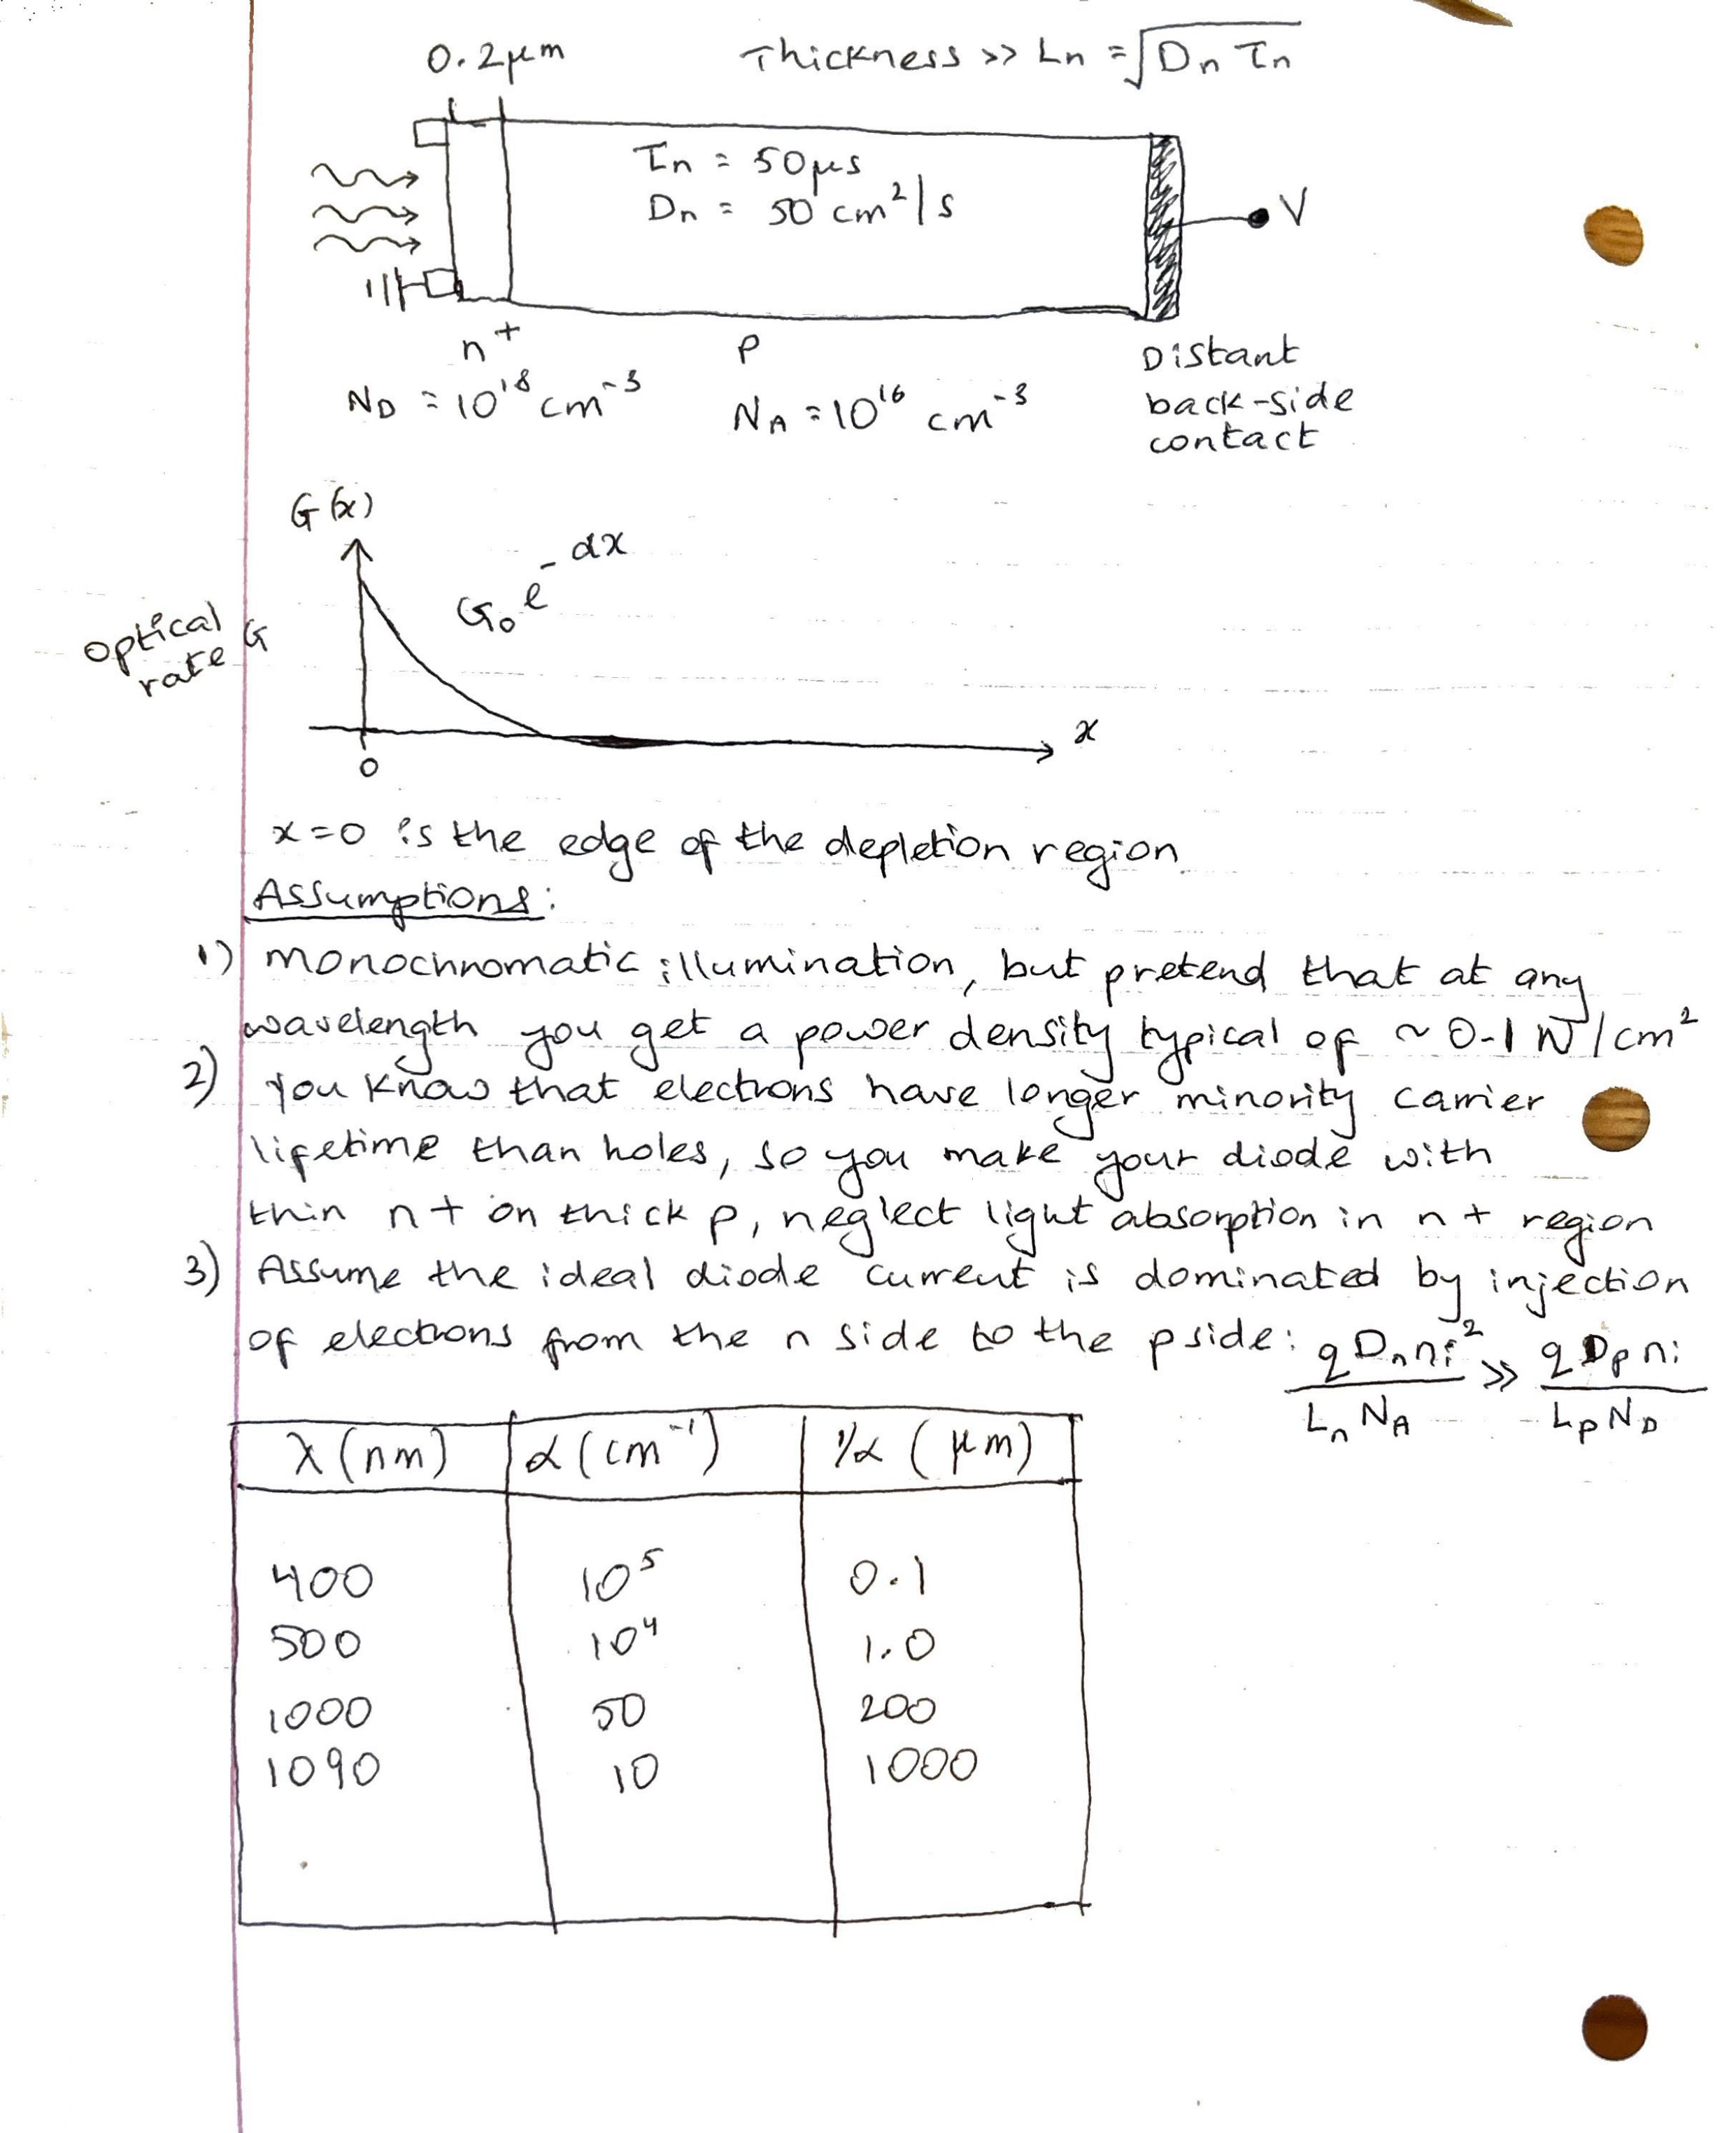 0.2μm
Thickness >> Ln = √Dn τn
τn = 50μs
Dn = 50 cm²/s
V
n⁺
P
Distant
back-side
contact
ND = 10¹⁸ cm⁻³
NA = 10¹⁶ cm⁻³
G(x)
G₀ e^-αx
optical G
rate
x
0
x=0 is the edge of the depletion region.
Assumptions:
1) monochromatic illumination, but pretend that at any
wavelength you get a power density typical of ~ 0.1 W/cm²
2) You know that electrons have longer minority carrier
lifetime than holes, so you make your diode with
thin n+ on thick p, neglect light absorption in n+ region
3) Assume the ideal diode current is dominated by injection
of electrons from the n side to the p side: qDnni²/LnNA >> qDpni/LpND
λ (nm) α (cm⁻¹) 1/α (μm)
400 10⁵ 0.1
500 10⁴ 1.0
1000 50 200
1090 10 1000